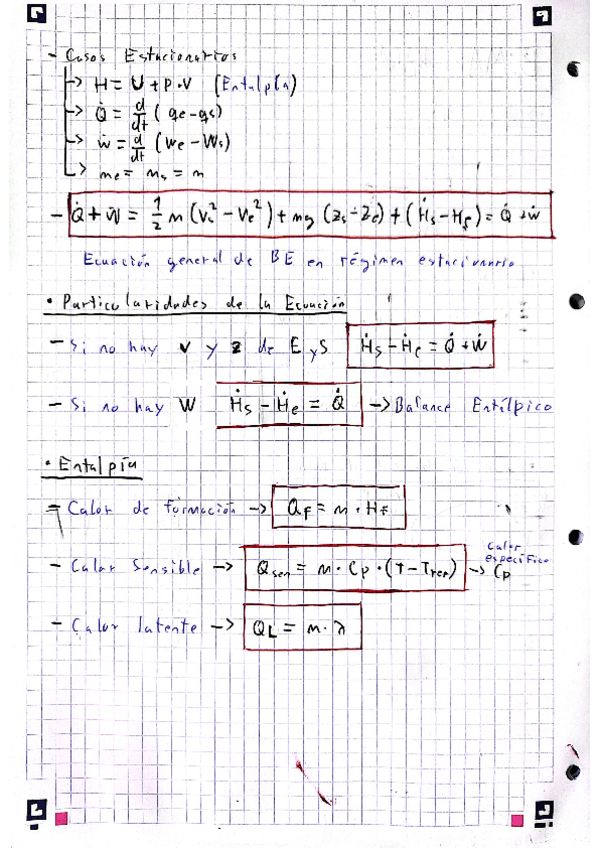 - Casos Estacionarios
-> H = U + P·V (Entalpía)
-> Q̇ = d/dt (qe - qs)
-> ẇ = d/dt (we - Ws)
-> me = ms = m
- Q̇ + Ẇ = 1/2 m (Vs² - Ve²) + mg (Zs - Ze) + (Ḣs - Ḣe) = Q̇ + ẇ
Ecuación general de BE en régimen estacionario
• Particularidades de la Ecuación
- Si no hay v y z de E y S Ḣs - Ḣe = Q̇ + Ẇ
- Si no hay W Ḣs - Ḣe = Q̇ -> Balance Entálpico
• Entalpía
- Calor de formación -> QF = m · HF
- Calor Sensible -> Qsen = m · Cp · (T - Tref) -> Cp Calor específico
- Calor latente -> QL = m · λ